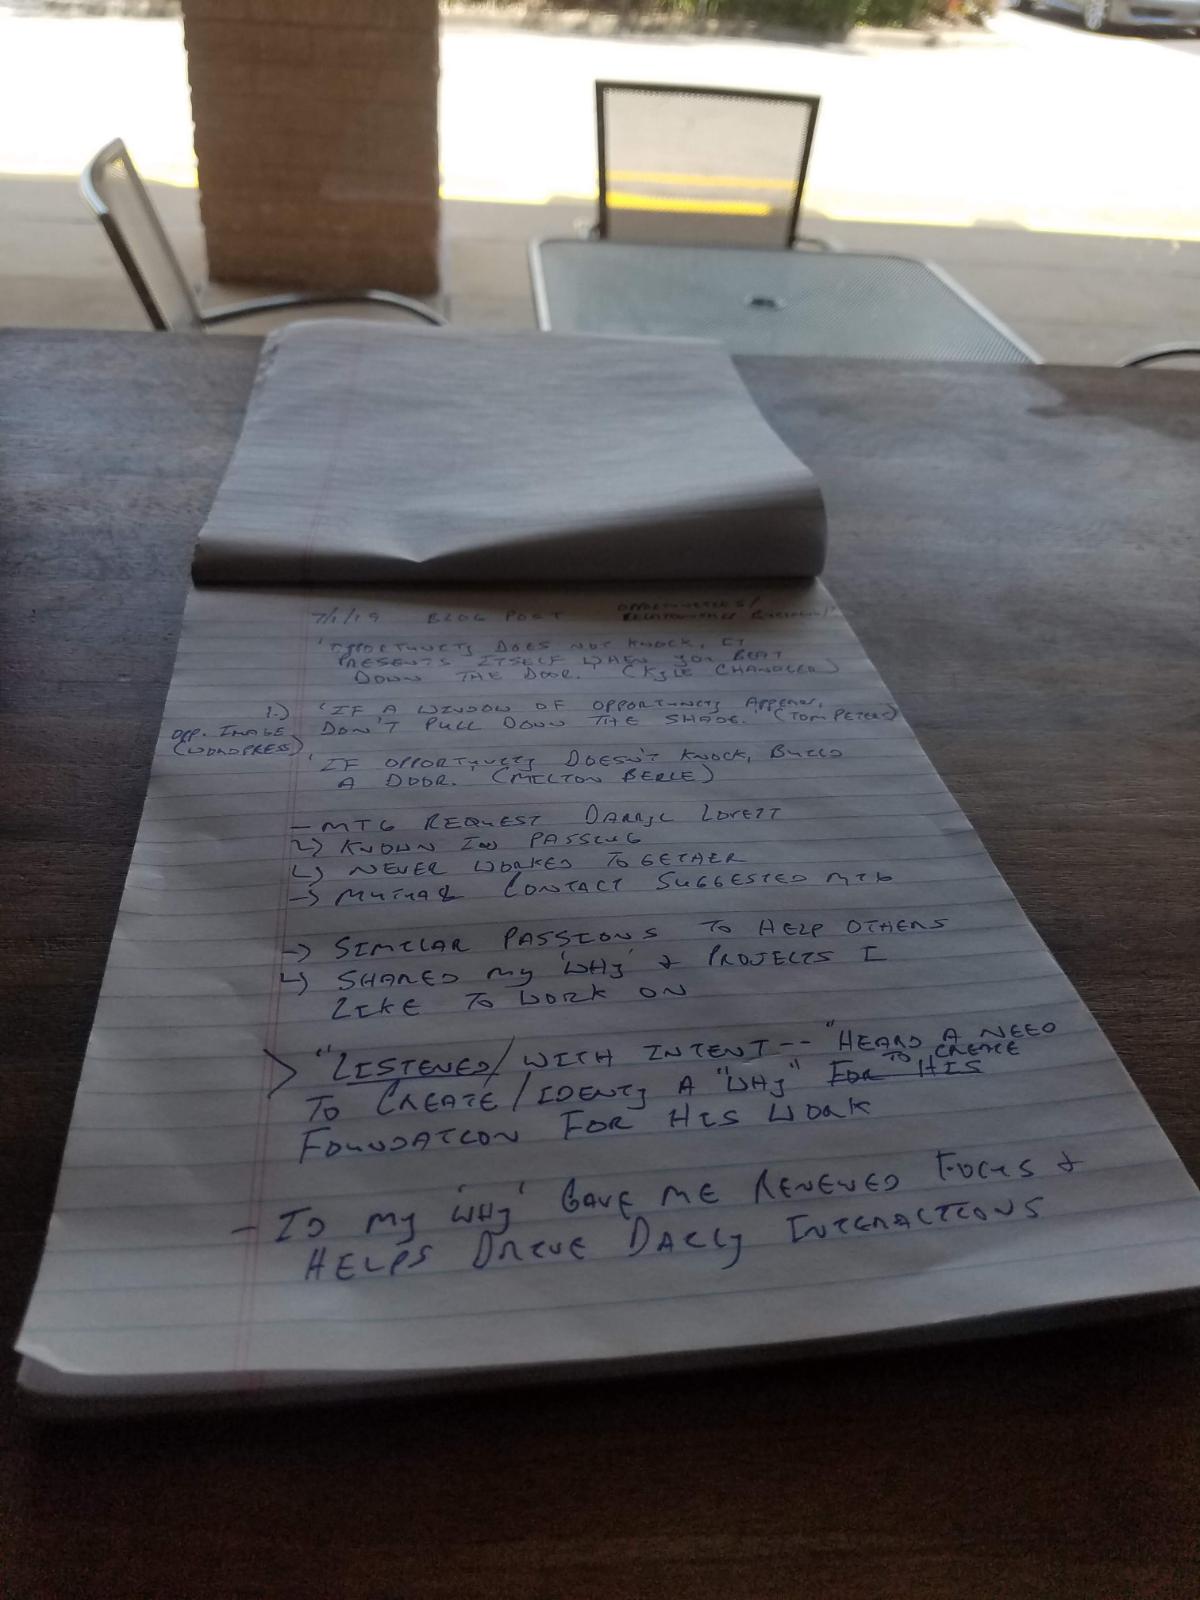 7/1/19 BLOG POST OPPORTUNITIES/
RELATIONSHIPS
"OPPORTUNITY DOES NOT KNOCK, IT
PRESENTS ITSELF WHEN YOU BEAT
DOWN THE DOOR." (KYLE CHANDLER)
1.) "IF A WINDOW OF OPPORTUNITY APPEARS,
OPP. IMAGE DON'T PULL DOWN THE SHADE. (TOM PETERS)
(WORDPRESS)
"IF OPPORTUNITY DOESN'T KNOCK, BUILD
A DOOR. (MILTON BERLE)
- MTG REQUEST DARRYL LOVETT
↳ KNOWN IN PASSING
↳ NEVER WORKED TOGETHER
→ MUTUAL CONTACT SUGGESTED MTG
→ SIMILAR PASSIONS TO HELP OTHERS
↳ SHARED MY 'WHY' + PROJECTS I
LIKE TO WORK ON
> "LISTENED/WITH INTENT -- "HEARD A NEED
TO CREATE
TO CREATE/IDENTY A "WHY" FOR HIS
FOUNDATION FOR HIS WORK
- ID MY 'WHY' GAVE ME RENEWED FOCUS +
HELPS DRIVE DAILY INTERACTIONS